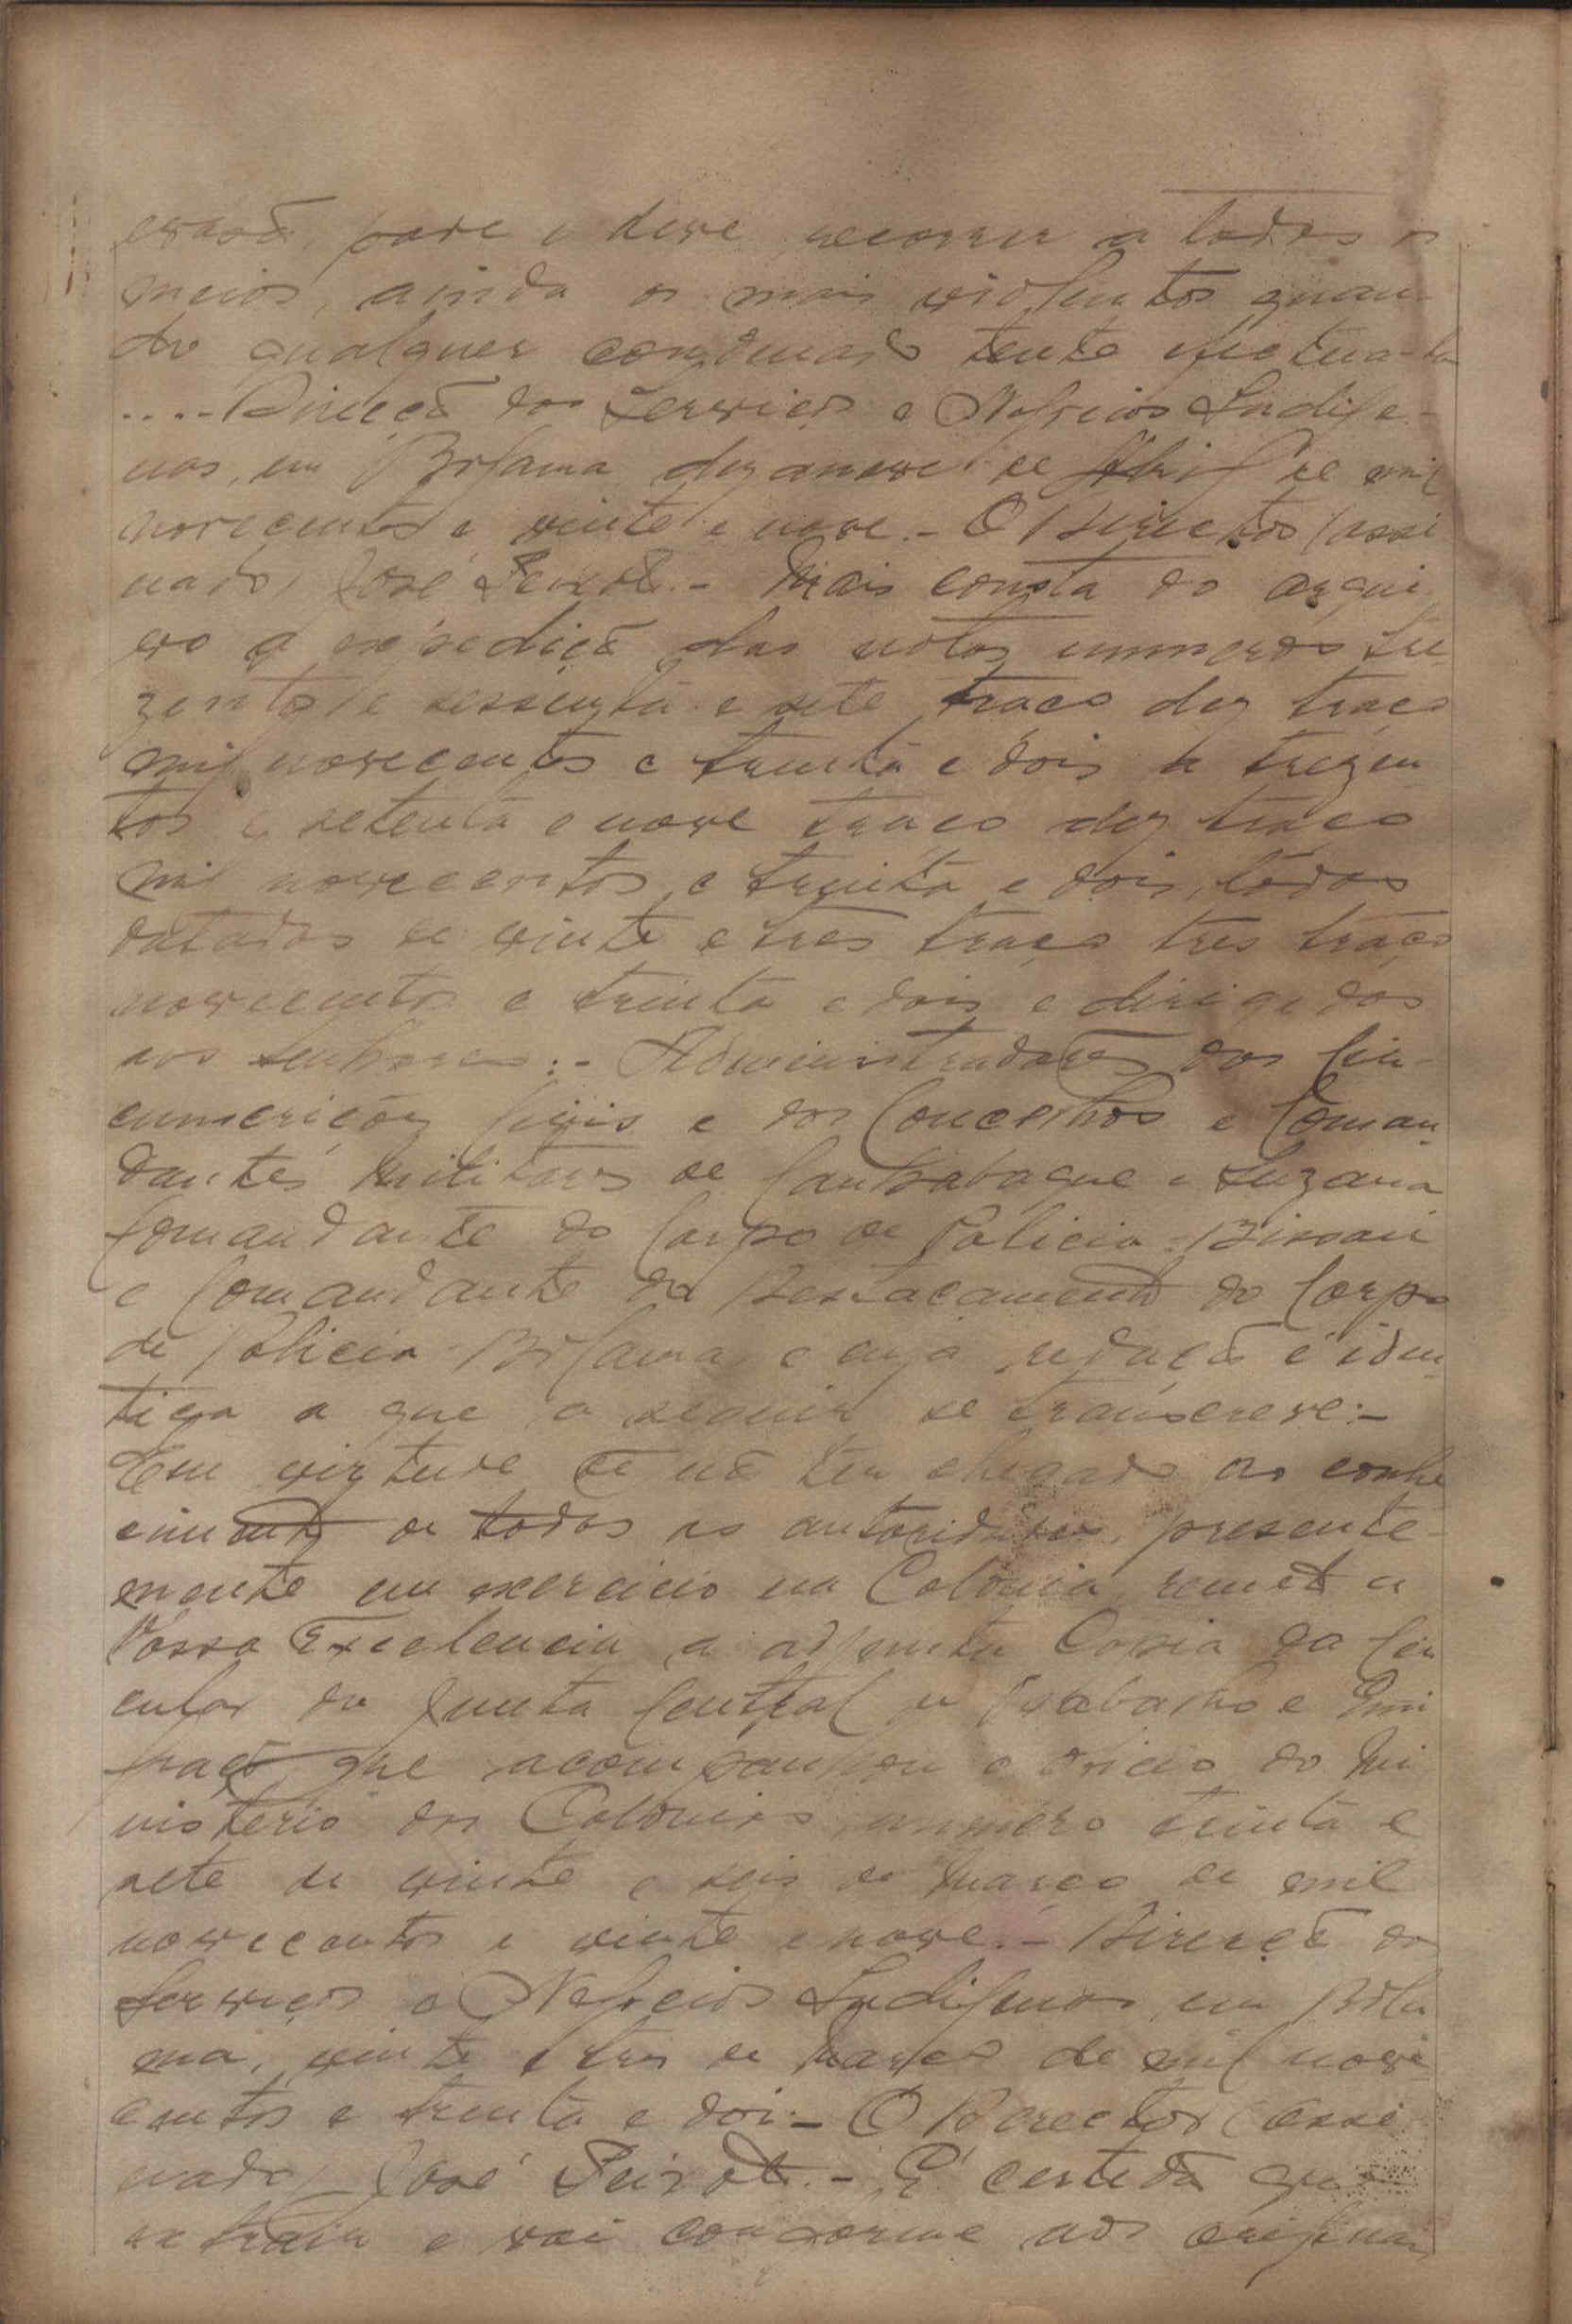 evasã, pode e deve recorrer a todos os
meios, ainda os mais violentos quan-
do qualquer condenado tente efectua-la
....- Direcçã dos Serviços e Negocios Indige-
nas, em Bolama dezanove de Abril de mil
novecentos e vinte e nove.- O Director (assi
nado) José Peixoto.- Mais consta do arqui
vo a expediçã das notas numeros tre
zentos e sessenta e sete traço dez traço
mil novecentos e trinta e dois a trezen
tos e setenta e nove traço dez traço
mil novecentos e trinta e dois, todas
datadas de vinte e tres traço tres traço
novecentos e trinta e dois e dirigidas
aos senhores:- Administradores das Cir-
cunscrições Civis e dos Concelhos e Coman
dantes Militares de Canhabaque e Suzana
Comandante do Corpo de Policia - Bissau
e Comandante do Destacamento do Corpo
de Policia - Bolama e cuja redaçã é iden
tica a que a seguir se transcreve:-
Em virtude de nã ter chegado ao conhe
cimento de todas as autoridades, presente-
mente em exercicio na Colonia, remeto a
Vossa Excelencia a adjunta Copia da Cir
cular da Junta Central de Trabalho e Emi
graçã que acompanhou o oficio do Mi
nisterio das Colonias numero trinta e
sete de vinte e seis de Março de mil
novecentos e vinte e nove.- Direcçã dos
Serviços e Negocios Indigenas, em Bola
ma, vinte e tres de Março de mil nove
centos e trinta e dois.- O Director (assi
nado) José Peixoto.- É certidã que
extraiu e vai conforme aos originais